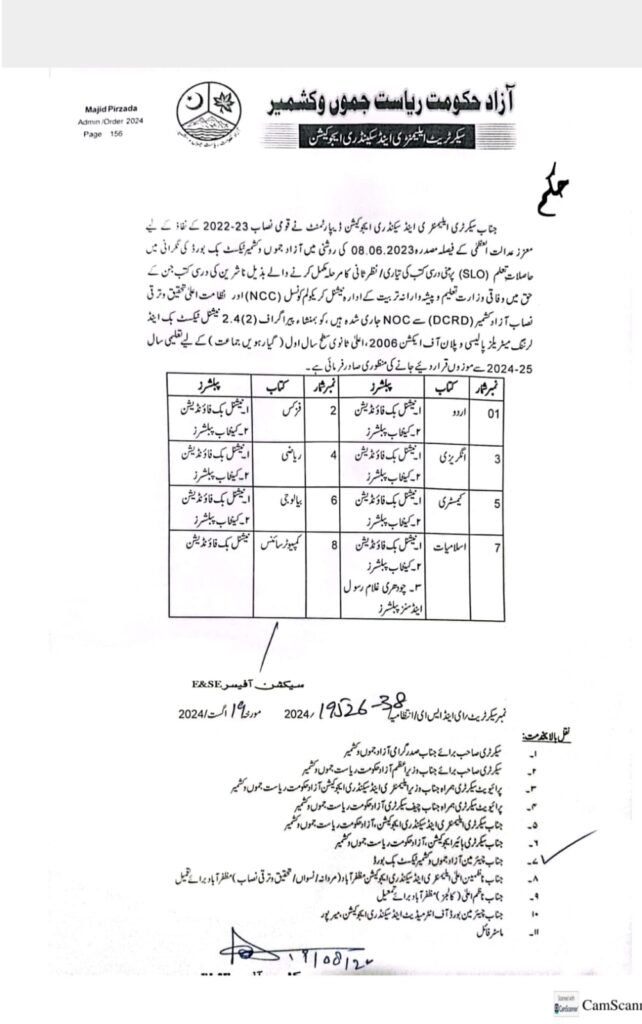 Majid Pirzada
Admin /Order 2024
Page 156
آزاد حکومت ریاست جموں وکشمیر
سیکرٹریٹ ایلیمنٹری اینڈ سیکنڈری ایجوکیشن
حکم
جناب سیکرٹری ایلیمنٹری اینڈ سیکنڈری ایجوکیشن ڈیپارٹمنٹ نے قومی نصاب 23-2022 کے نفاذ کے لیے
معزز عدالت العظمٰی کے فیصلہ مصدرہ 08.06.2023 کی روشنی میں آزاد جموں وکشمیر ٹیکسٹ بک بورڈ کی نگرانی میں
حاصلات تعلم (SLO) پر مبنی درسی کتب کی تیاری/ نظر ثانی کا مرحلہ مکمل کرنے والے بذیل ناشرین کی درسی کتب جن کے
حق میں وفاقی وزارت تعلیم و پیشہ وارانہ تربیت کے ادارہ نیشنل کریکولم کونسل (NCC) اور نظامت اعلٰی تحقیق وترقی
نصاب آزاد کشمیر (DCRD) سے NOC جاری شدہ ہیں، کو بمنشاء پیراگراف (2)2.4 نیشنل ٹیکسٹ بک اینڈ
لرننگ میٹریلز پالیسی و پلان آف ایکشن 2006، اعلٰی ثانوی سطح سال اول (گیارہویں جماعت) کے لیے تعلیمی سال
2024-25 سے موزوں قرار دیئے جانے کی منظوری صادر فرمائی ہے۔
نمبر شمار کتاب پبلشرز نمبر شمار کتاب پبلشرز
01 اردو ۱۔ نیشنل بک فاؤنڈیشن 2 فزکس ۱۔ نیشنل بک فاؤنڈیشن
۲۔ کیتھاب پبلشرز ۲۔ کیتھاب پبلشرز
3 انگریزی ۱۔ نیشنل بک فاؤنڈیشن 4 ریاضی ۱۔ نیشنل بک فاؤنڈیشن
۲۔ کیتھاب پبلشرز ۲۔ کیتھاب پبلشرز
5 کیمسٹری ۱۔ نیشنل بک فاؤنڈیشن 6 بیالوجی ۱۔ نیشنل بک فاؤنڈیشن
۲۔ کیتھاب پبلشرز ۲۔ کیتھاب پبلشرز
7 اسلامیات ۱۔ نیشنل بک فاؤنڈیشن 8 کمپیوٹر سائنس نیشنل بک فاؤنڈیشن
۲۔ کیتھاب پبلشرز
۳۔ چودھری غلام رسول
اینڈ سنز پبلشرز
سیکشن آفیسر E&SE
نمبر سیکرٹریٹ/ای اینڈ ایس ای/انتظامیہ/ 19526-38 /2024 مورخہ 19 اگست/2024
نقل بالا بخدمت:
۱۔ سیکرٹری صاحب برائے جناب صدر گرامی آزاد جموں وکشمیر
۲۔ سیکرٹری صاحب برائے جناب وزیر اعظم آزاد حکومت ریاست جموں وکشمیر
۳۔ پرائیویٹ سیکرٹری ہمراہ جناب وزیر ایلیمنٹری اینڈ سیکنڈری ایجوکیشن آزاد حکومت ریاست جموں وکشمیر
۴۔ پرائیویٹ سیکرٹری ہمراہ جناب چیف سیکرٹری آزاد حکومت ریاست جموں وکشمیر
۵۔ جناب سیکرٹری ایلیمنٹری اینڈ سیکنڈری ایجوکیشن، آزاد حکومت ریاست جموں وکشمیر
۶۔ جناب سیکرٹری ہائیر ایجوکیشن، آزاد حکومت ریاست جموں وکشمیر
۷۔ جناب چیئرمین آزاد جموں وکشمیر ٹیکسٹ بک بورڈ
۸۔ جناب ناظمین اعلٰی ایلیمنٹری اینڈ سیکنڈری ایجوکیشن مظفرآباد (مردانہ/نسواں/تحقیق وترقی نصاب) مظفرآباد برائے تعمیل
۹۔ جناب ناظم اعلٰی (کالجز) مظفرآباد برائے تعمیل
۱۰۔ جناب چیئرمین بورڈ آف انٹرمیڈیٹ اینڈ سیکنڈری ایجوکیشن، میرپور
۱۱۔ ماسٹر فائل
19/08/2
Scanned with
CamScanner
CamScann